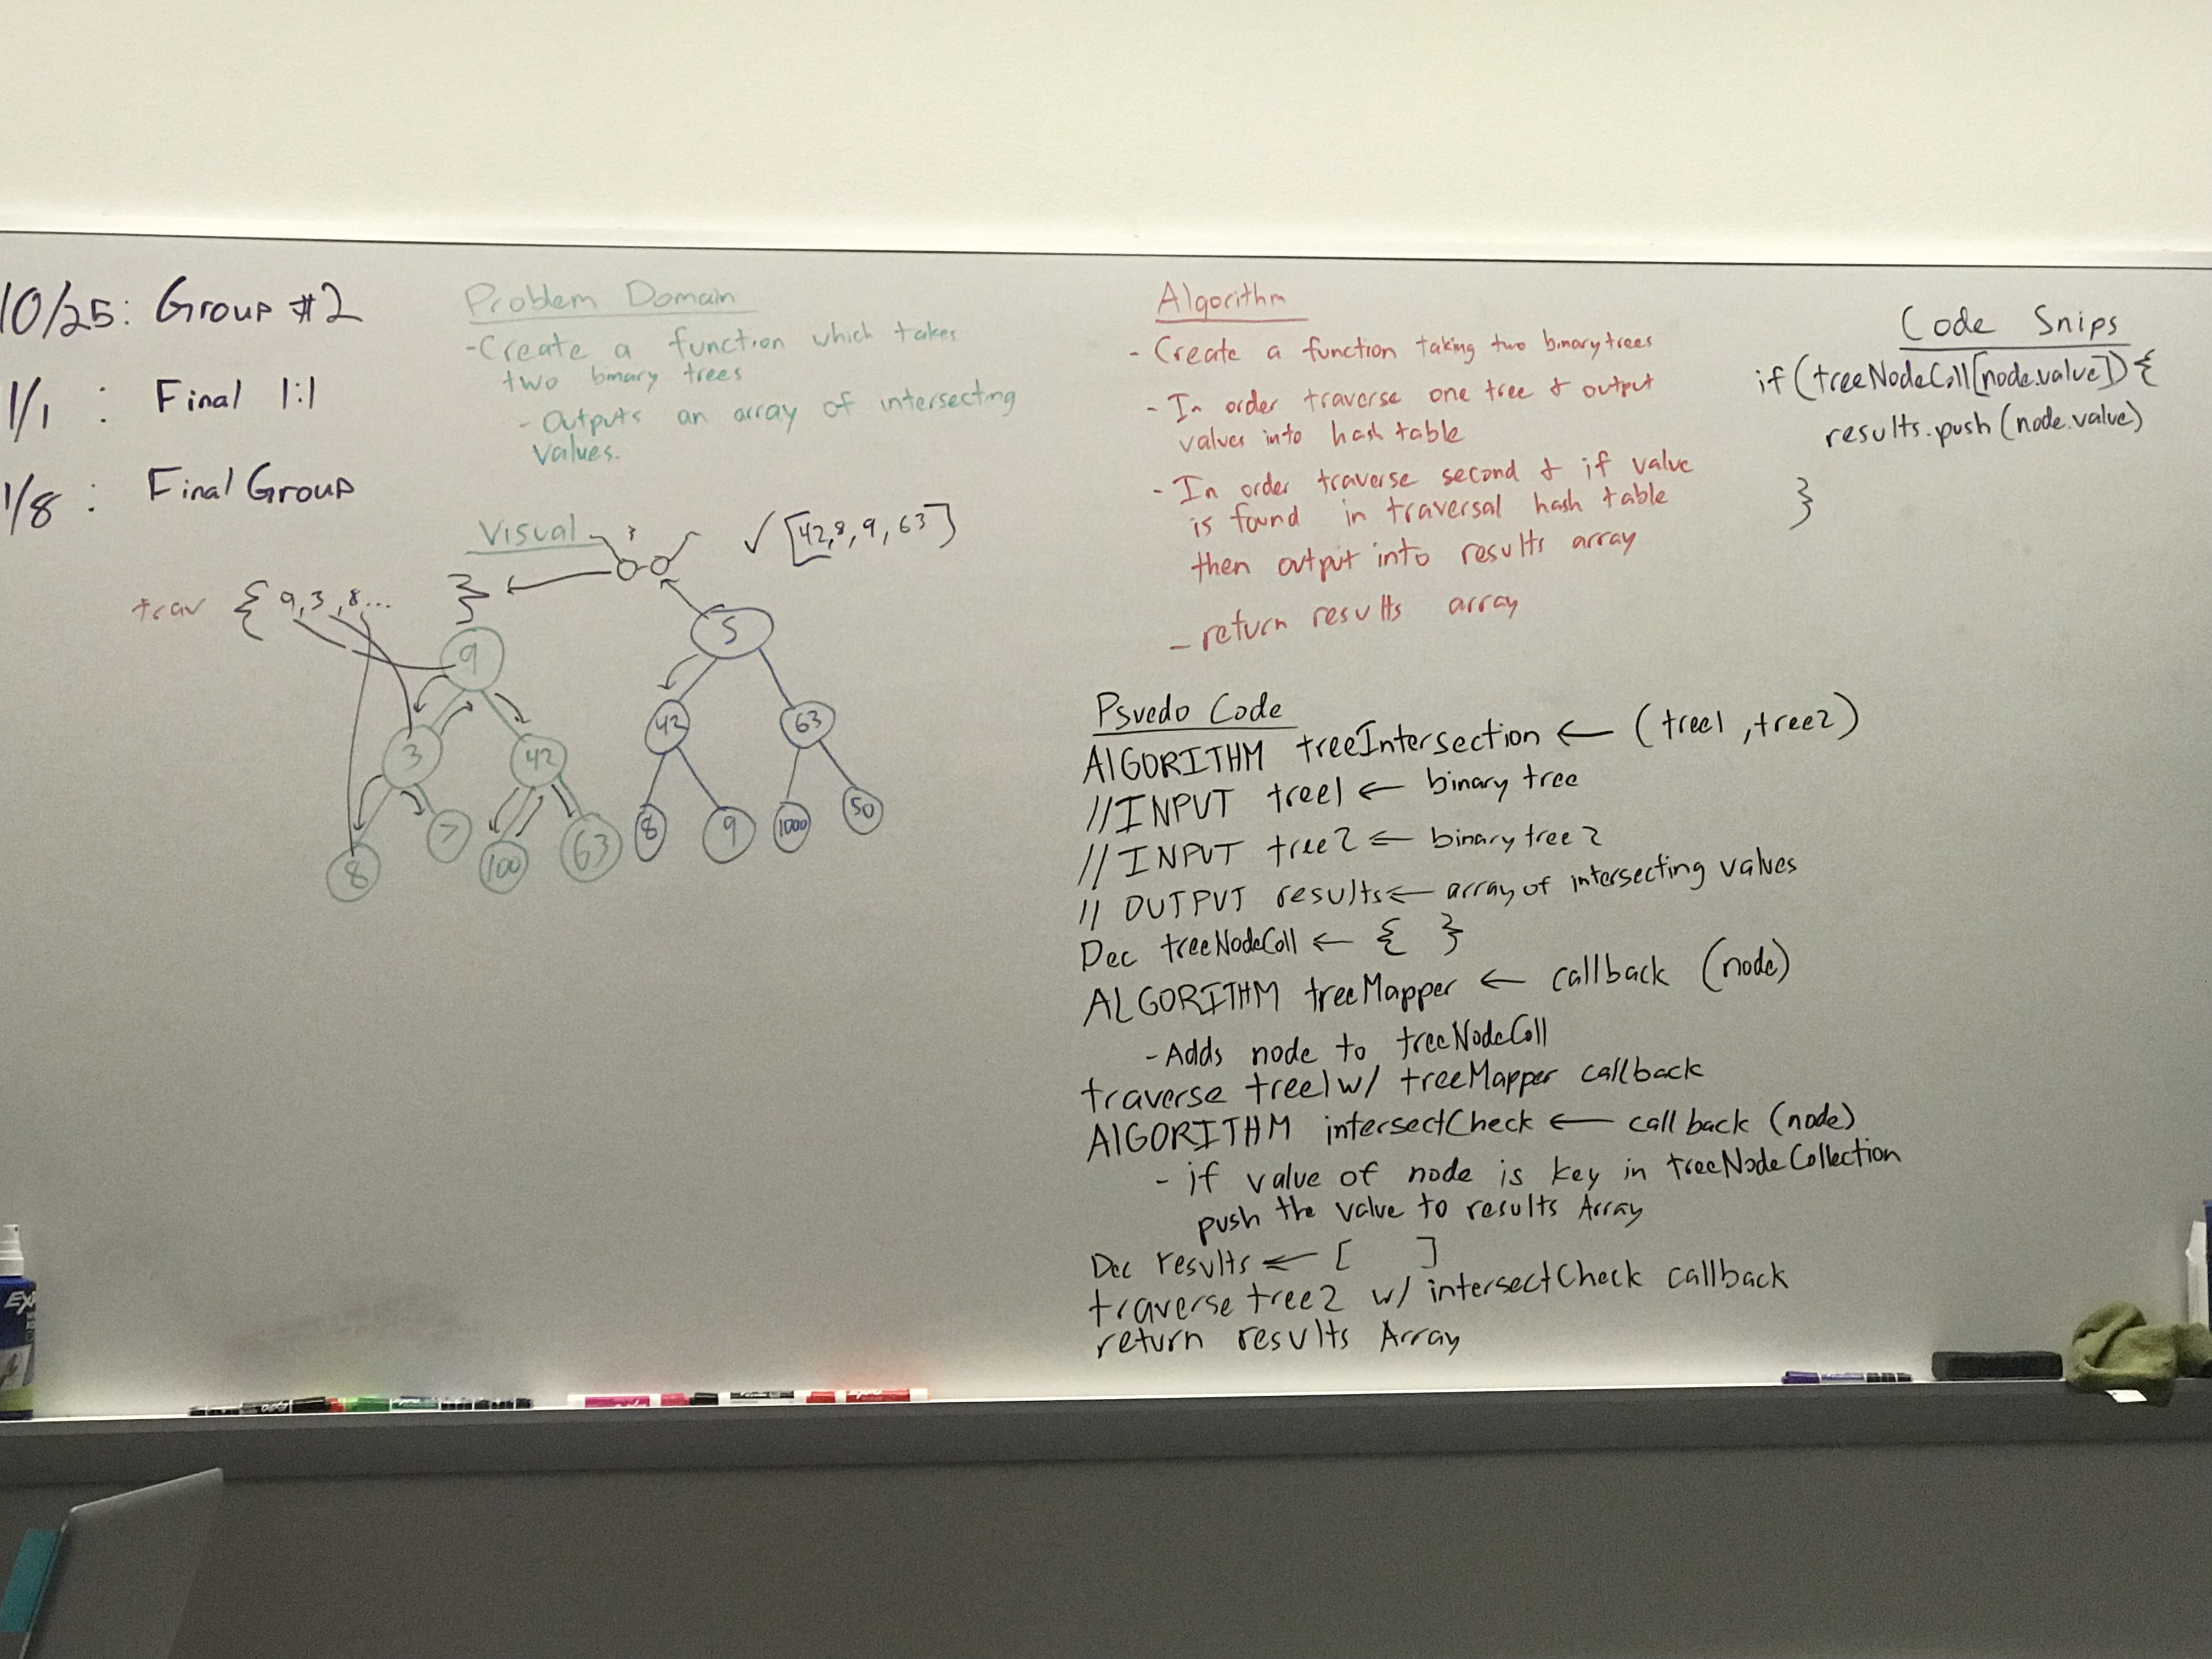 10/25: Group #2
1/1 : Final 1:1
1/8 : Final Group
Problem Domain
-Create a function which takes
two binary trees
- Outputs an array of intersecting
values.
Visual
✓ [42,8,9,63]
trav { 9,3,8... }
9
3
42
8
7
100
63
5
42
63
8
9
1000
50
Algorithm
- Create a function taking two binary trees
- In order traverse one tree & output
values into hash table
- In order traverse second & if value
is found in traversal hash table
then output into results array
- return results array
Psvedo Code
AlGORITHM treeIntersection ← (tree1, tree2)
//INPUT tree1 ← binary tree
//INPUT tree2 ← binary tree 2
// OUTPUT results ← array of intersecting values
Dec treeNodeColl ← { }
ALGORITHM treeMapper ← callback (node)
-Adds node to treeNodeColl
traverse tree1 w/ treeMapper callback
AlGORITHM intersectCheck ← callback (node)
- if value of node is key in treeNodeCollection
push the value to results Array
Dec results ← [ ]
traverse tree2 w/ intersectCheck callback
return results Array
Code Snips
if (treeNodeColl[node.value]) {
results.push(node.value)
}